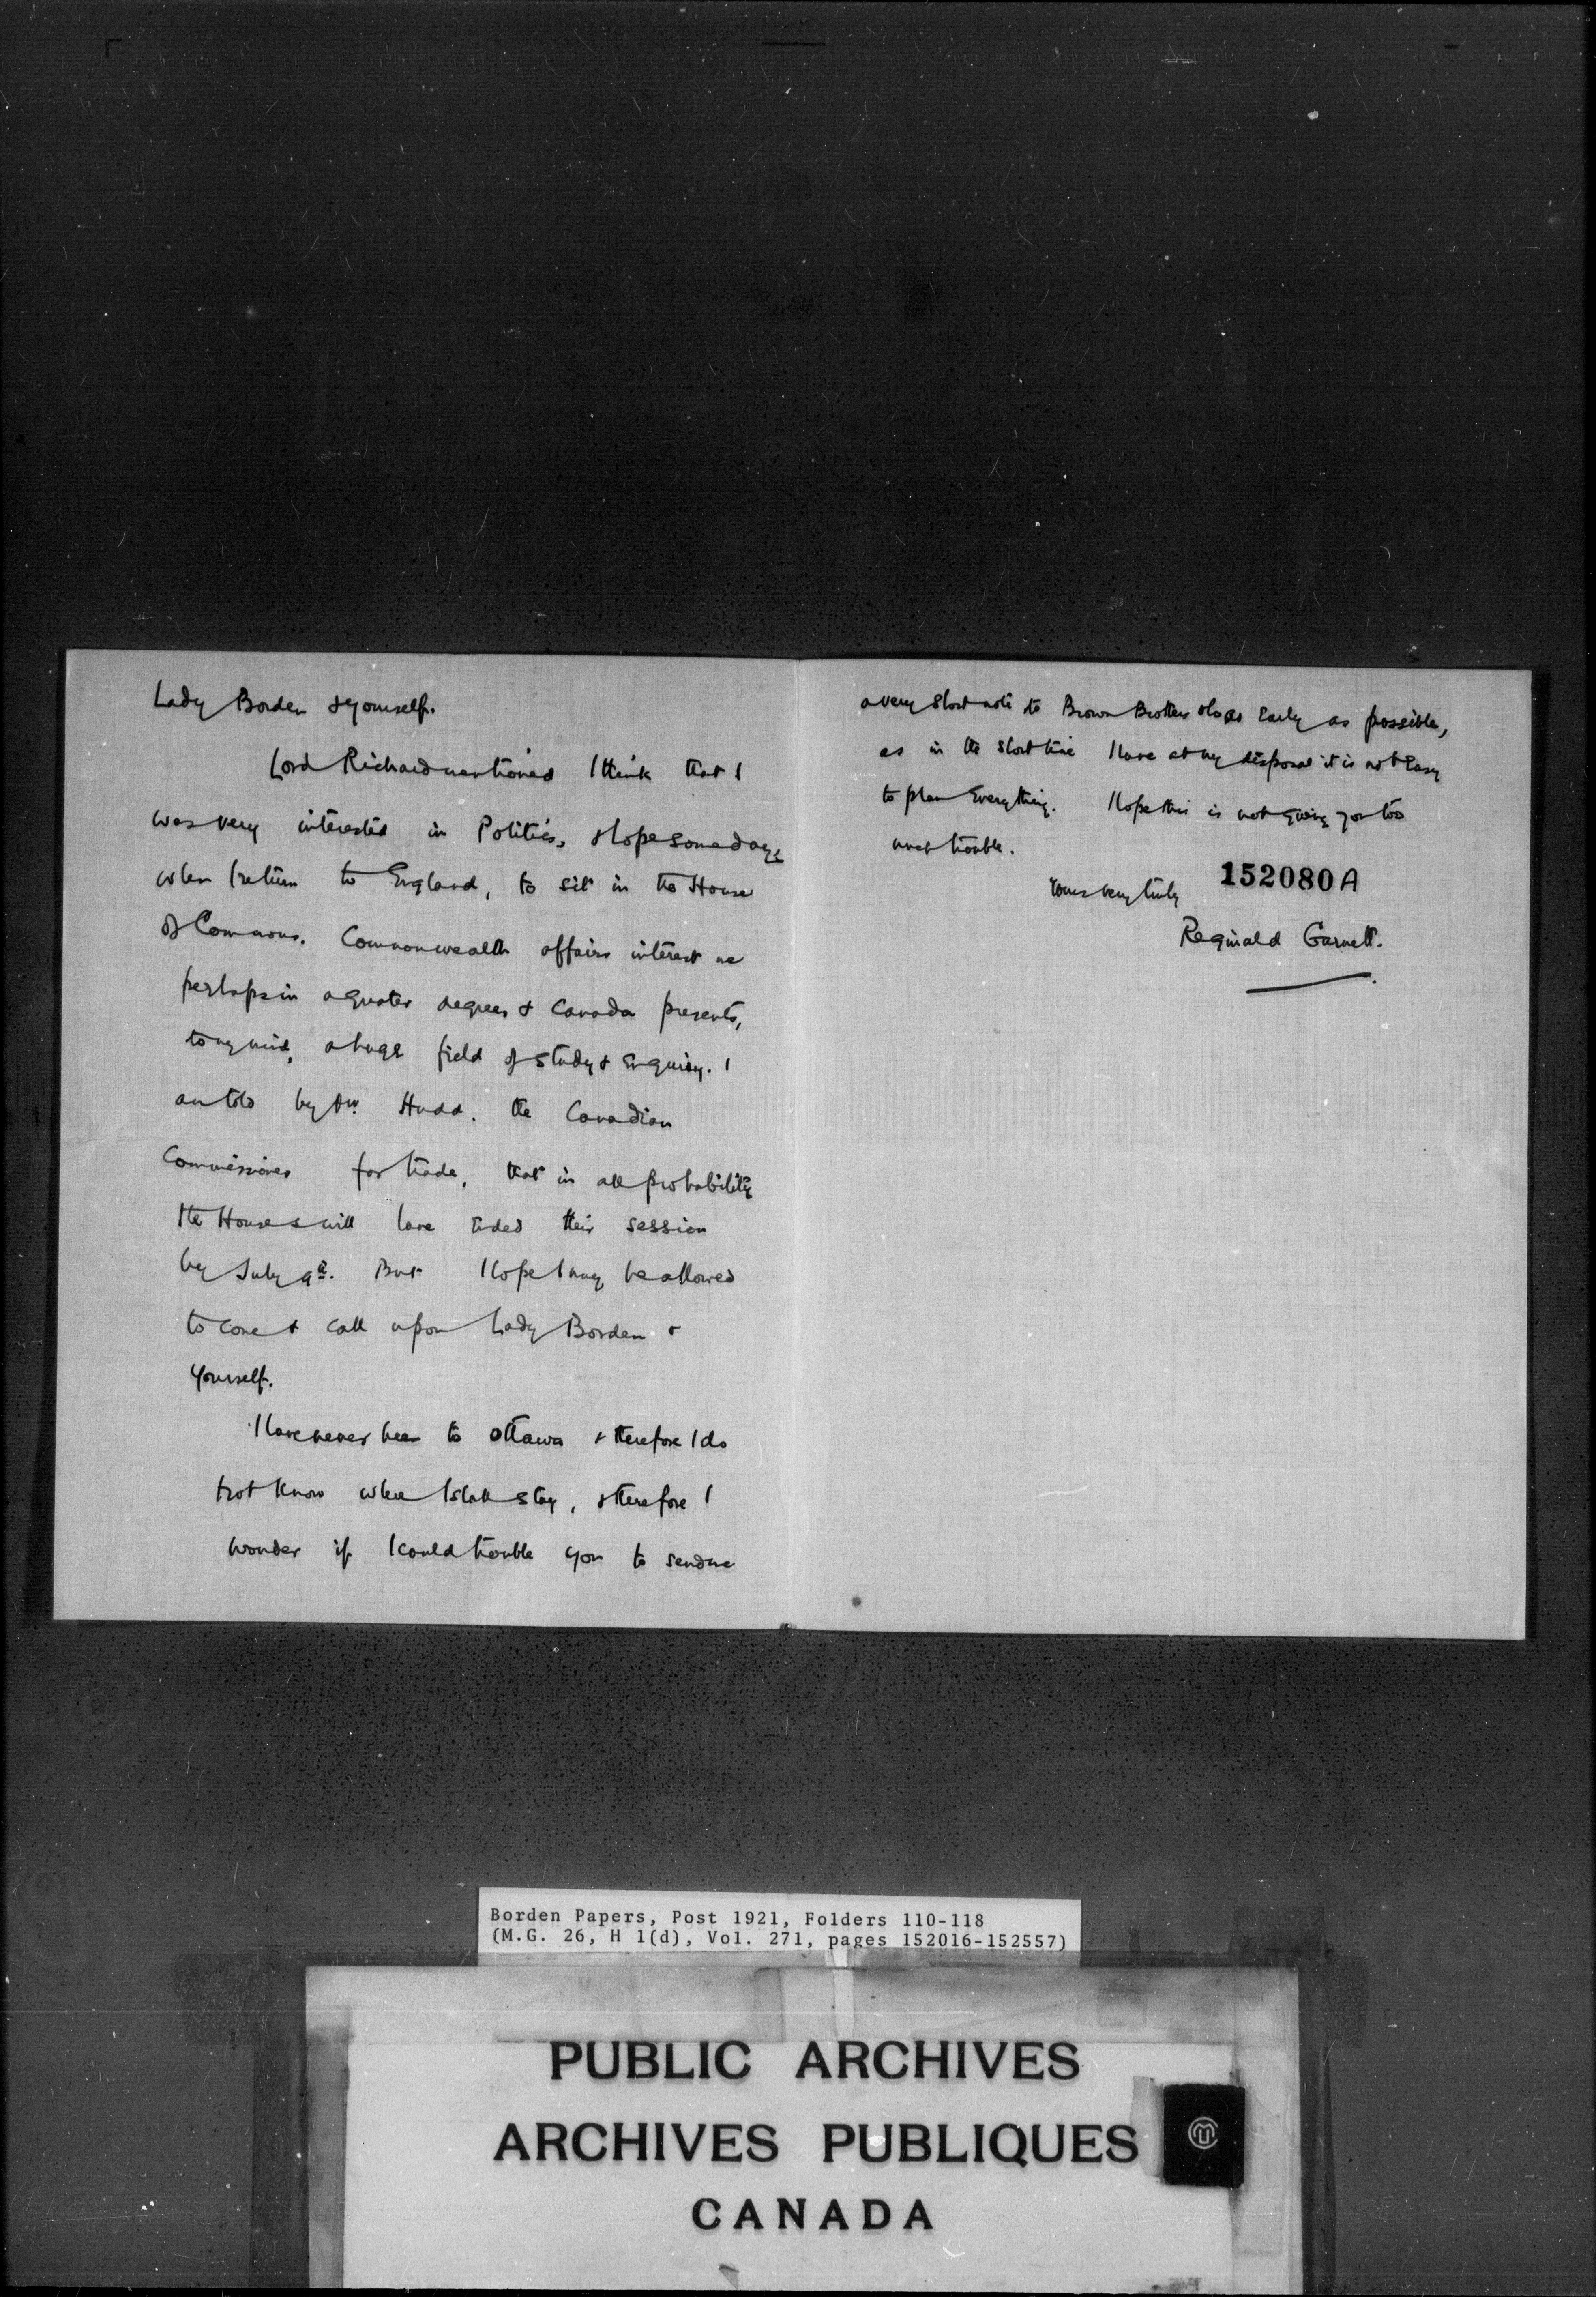 Lady Borden & yourself.
Lord Richard mentioned I think that I
was very interested in Politics, & hope some day,
when I return to England, to sit in the House
of Commons. Commonwealth affairs interest me
perhaps in a greater degree, & Canada presents,
to my mind, a huge field of study & enquiry. I
am told by Mr. Hudd. the Canadian
Commissioner for trade, that in all probability
the Houses will have ended their session
by July 9th. But I hope I may be allowed
to come & call upon Lady Borden &
yourself.
I have never been to Ottawa & therefore I do
not know where I shall stay, & therefore I
wonder if I could trouble you to send me
a very short note to Brown Brothers as early as possible,
as in the short time I have at my disposal it is not easy
to plan everything. I hope this is not giving you too
much trouble.
Yours very truly
152080A
Reginald Garnett.
Borden Papers, Post 1921, Folders 110-118
(M.G. 26, H 1(d), Vol. 271, pages 152016-152557)
PUBLIC ARCHIVES
ARCHIVES PUBLIQUES
CANADA